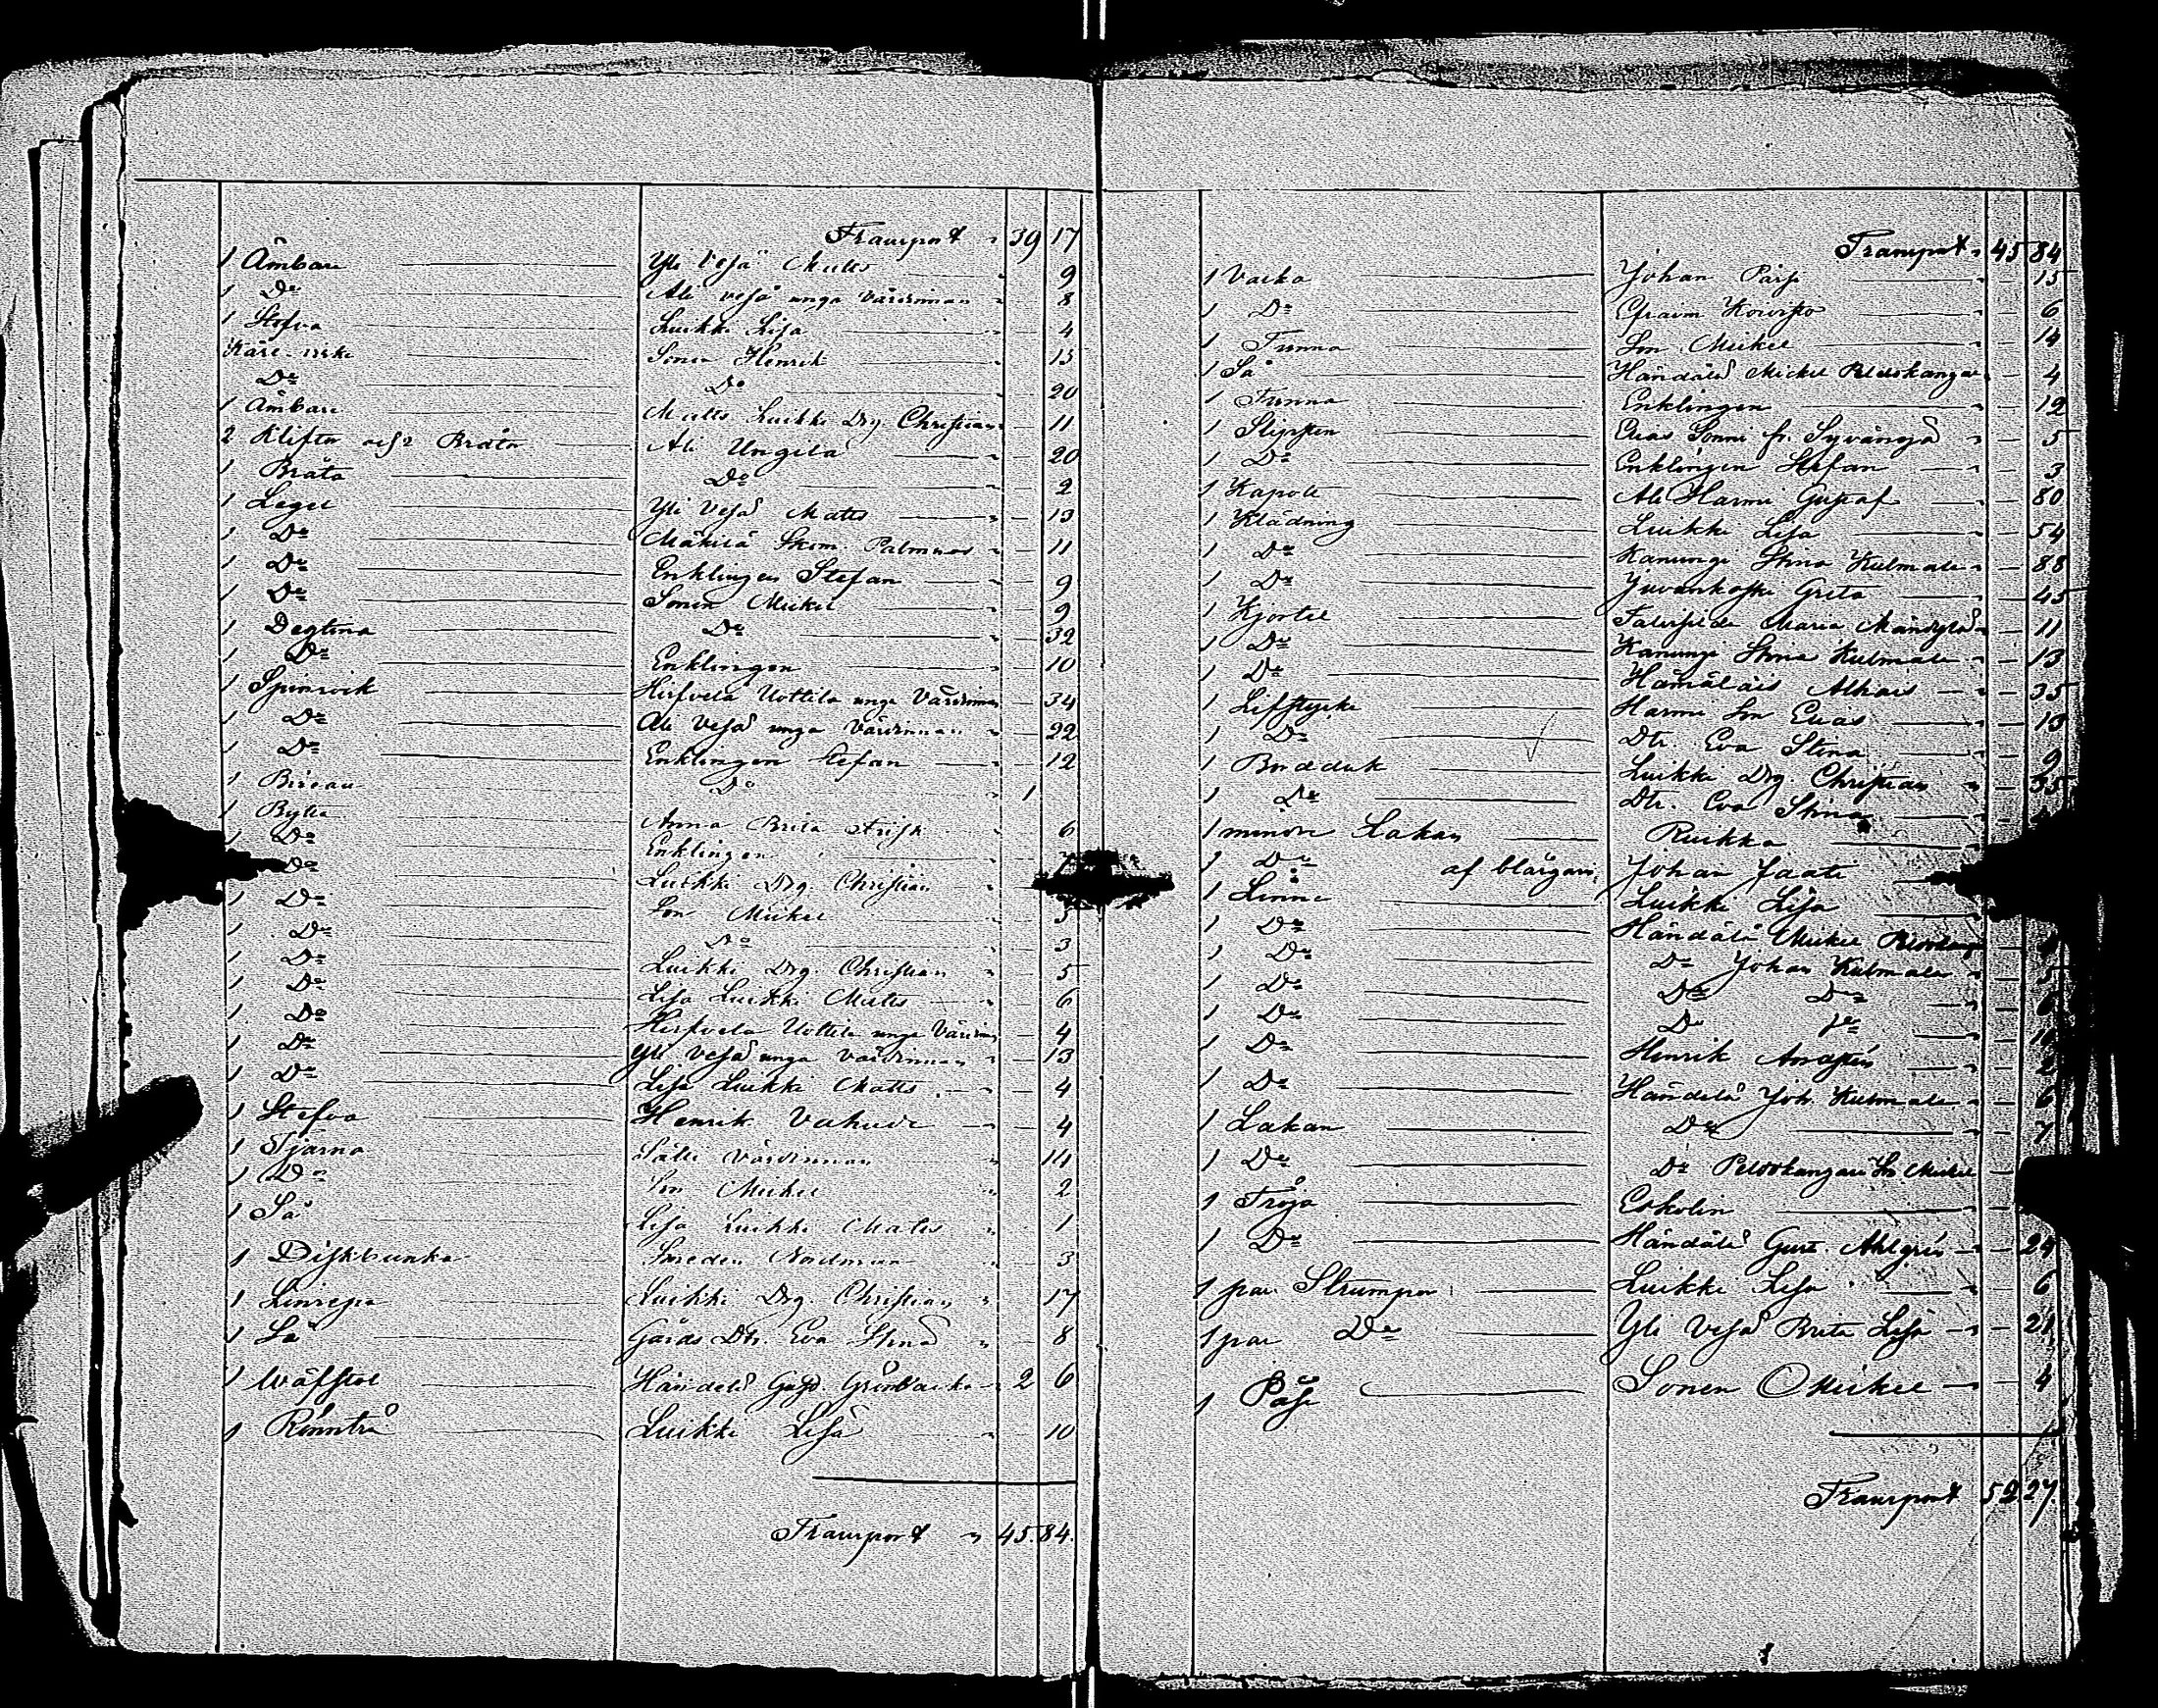 Transport " 39 17
1 Ämbare Yli Vesä Matts " 9
1 Do Ali Vesä unga Värdinnan " 8
1 Stäfva Luikki Lisa " 4
Sonen Henrik " 15
Do Do 20
1 Ämbare Matts Luikki Drg Christian 11
2 Klifta och 2 Bråta Ali Ungila 20
1 Bråta Do 2
1 Legel Yli Vesä Matts " 13
1 Do Mäkilä Skom. Palmroos " 11
1 Do Enklingen Stefan 9
1 Do Sonen Mickel 9
1 Degtina Do 32
1 Do Enklingen 10
1 Spinrock Hirfvelä Uottila unga Värdinnan 34
1 Do Ali Vesä unga Värdinnan " 22
1 Do Enklingen Stefan 12
1 Do " 1
1 Bytta Anna Brita Frisk 6
1 Do Enklingen
1 Do Luikki Drg Christian
1 Do Son Mickel 3
1 Do Do 3
1 Do Luikki Drg. Christian " 5
1 Do Lisa Luikki Matts " 6
1 Do Hirfvelä Uottila unga Värdinnan 4
1 Do Yli Vesä unga Värdinnan " 13
1 Do Lisa Luikki Matts " 4
1 Stäfva Henrik 4
1 Tjärna Sälli Värdinnan " 14
1 Do Son Mickel " 2
1 Så Lisa Luikki Matts " 1
1 Diskbunke Smeden Nordman 3
1 Linrepa Luikki Drg. Christian " 17
1 Så Gårds Dtr. Eva Stina " 8
1 Wäfstol Händelä Gust. Grönbacka 2 6
1 Rönnträ Luikki Lisa " 10
Transport " 45. 84.
Transport " 45 84
1 Vacka Johan 15
1 Do Efraim Koivisto 6
1 Tunna Son Mickel " 14
1 Så Händälä Mickel Peldokangas 4
1 Tunna Enklingen " 12
1 Slipsten Elias Sonni fr. 5
1 Do Enklingen Stefan " 3
1 Kapott Ali Harmi Gustaf " 80
1 Klädning Luikki Lisa " 54
1 Do Kanungi Stina Kulmala " 88
1 Do Juvankoski Greta 45
1 Kjortel Maria 11
1 Do Kanungi Stina Kulmala " 13
1 Do Hämäläis 35
1 Lifstycke Harmi Son Elias " 13
1 Do Dtr. Eva Stina 9
1 Bordduk Luikki Drg. Christian " 35
1 Do Dtr. Eva Stina
1 mindre Lakan Ruikka
1 Do af blårgarn Johan Jaati
1 Linne Luikki Lisa
1 Do Händälä Mickel
1 Do Do Johan Kulmala 5
1 Do Do Do 6
1 Do Do Do
1 Do Henrik 2
1 Do Händelä Joh. Kulmala 6
1 Lakan Do 7
1 Do Do Peldokangas Sn. Mickel
1 Tröja Eskolin
1 Do Händälä Gust. Ahlgrén 24
1 par Strumpor Luikki Lisa " 6
1 par Do Yli Vesä Brita Lisa " 21
1 Påse Sonen Mickel " 4
Transport 52. 27.